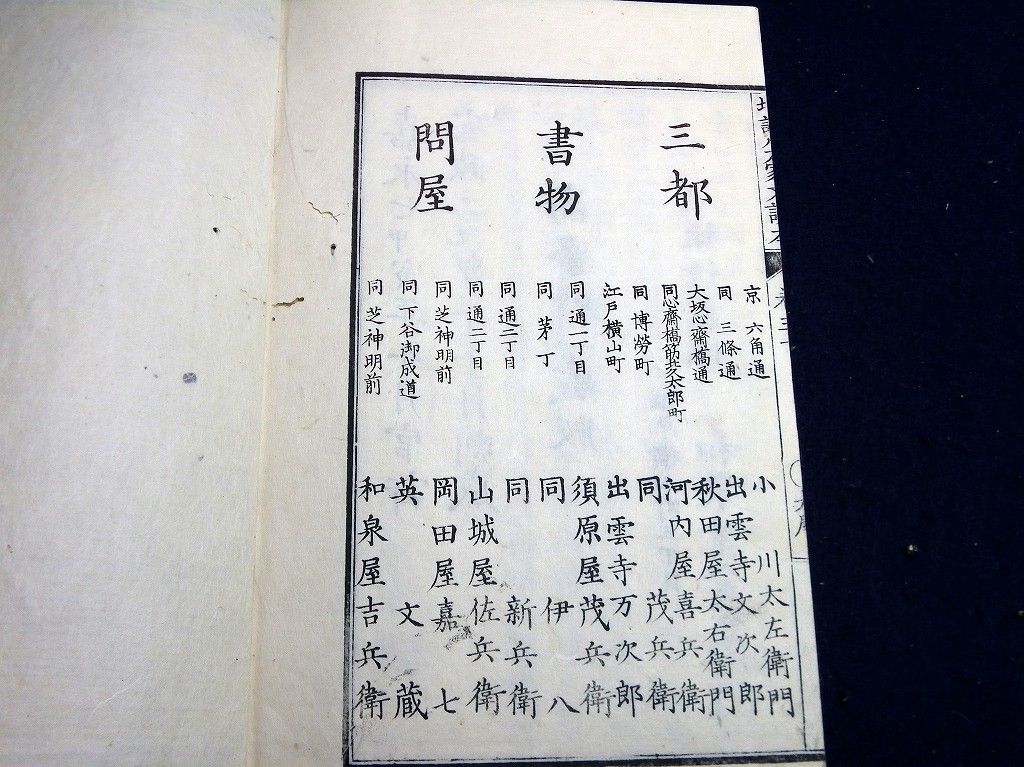 三都
書物
問屋
京 六角通 小川太左衛門
同 三條通 出雲寺文次郎
大坂心齋橋通 秋田屋太右衛門
同心齋橋筋北久太郎町 河内屋喜兵衛
同 博勞町 同 茂兵衛
江戸横山町 出雲寺万次郎
同 通一丁目 須原屋茂兵衛
同 茅丁 同 伊八
同 通二丁目 同 新兵衛
同 通二丁目 山城屋佐兵衛
同 芝神明前 岡田屋嘉七
同 下谷御成道 英文蔵
同 芝神明前 和泉屋吉兵衛